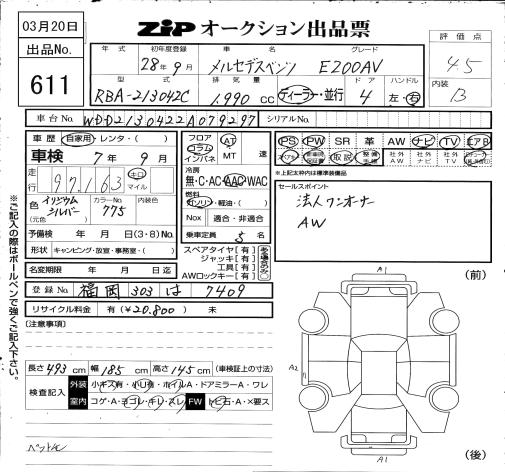 03月20日
ZIP オークション出品票
出品No.
611
評価点
4.5
内装
B
年式 初年度登録 車名 グレード
28年9月 メルセデスベンツ E200AV
型式 排気量 ドア ハンドル
RBA-213042C 1,990 cc ディーラー・並行 4 左・右
車台No. WDD2130422A079297 シリアルNo.
車歴 自家用・レンタ・( )
車検 7年9月
走行 97,163 キロ マイル
色 (元色) イリジウムシルバー カラーNo. 775 内装色
予備検 年 月 日(3・8)No.
形状 キャンピング・放宣・事務室・( )
名変期限 年 月 日迄
フロア コラム インパネ AT MT 速
冷房 無・C・AC・AAC・WAC
燃料 ガソリン・軽油・( )
Nox 適合・非適合
乗車定員 5名
スペアタイヤ[有]
ジャッキ[有]
工具[有]
AWロックキー[有]
PS PW SR 革 AW ナビ TV エアB
社外AW 社外ナビ 社外TV
取説
※上記太枠内は標準装備品
セールスポイント
法人ワンオーナー
AW
登録No. 福岡 303 は 7409
リサイクル料金 有(¥20,800) 未
[注意事項]
長さ 493cm 幅 185cm 高さ 145cm (車検証上の寸法)
検査記入 外装 小キズ有・小凹有・ホイルA・ドアミラーA・ワレ
室内 コゲ・A・ヨゴレ・キレ・スレ FW トビ石・A・×要ス
ペットAC
※ご記入の際はボールペンで強くご記入下さい。
(前)
A1
A2
A1
(後)